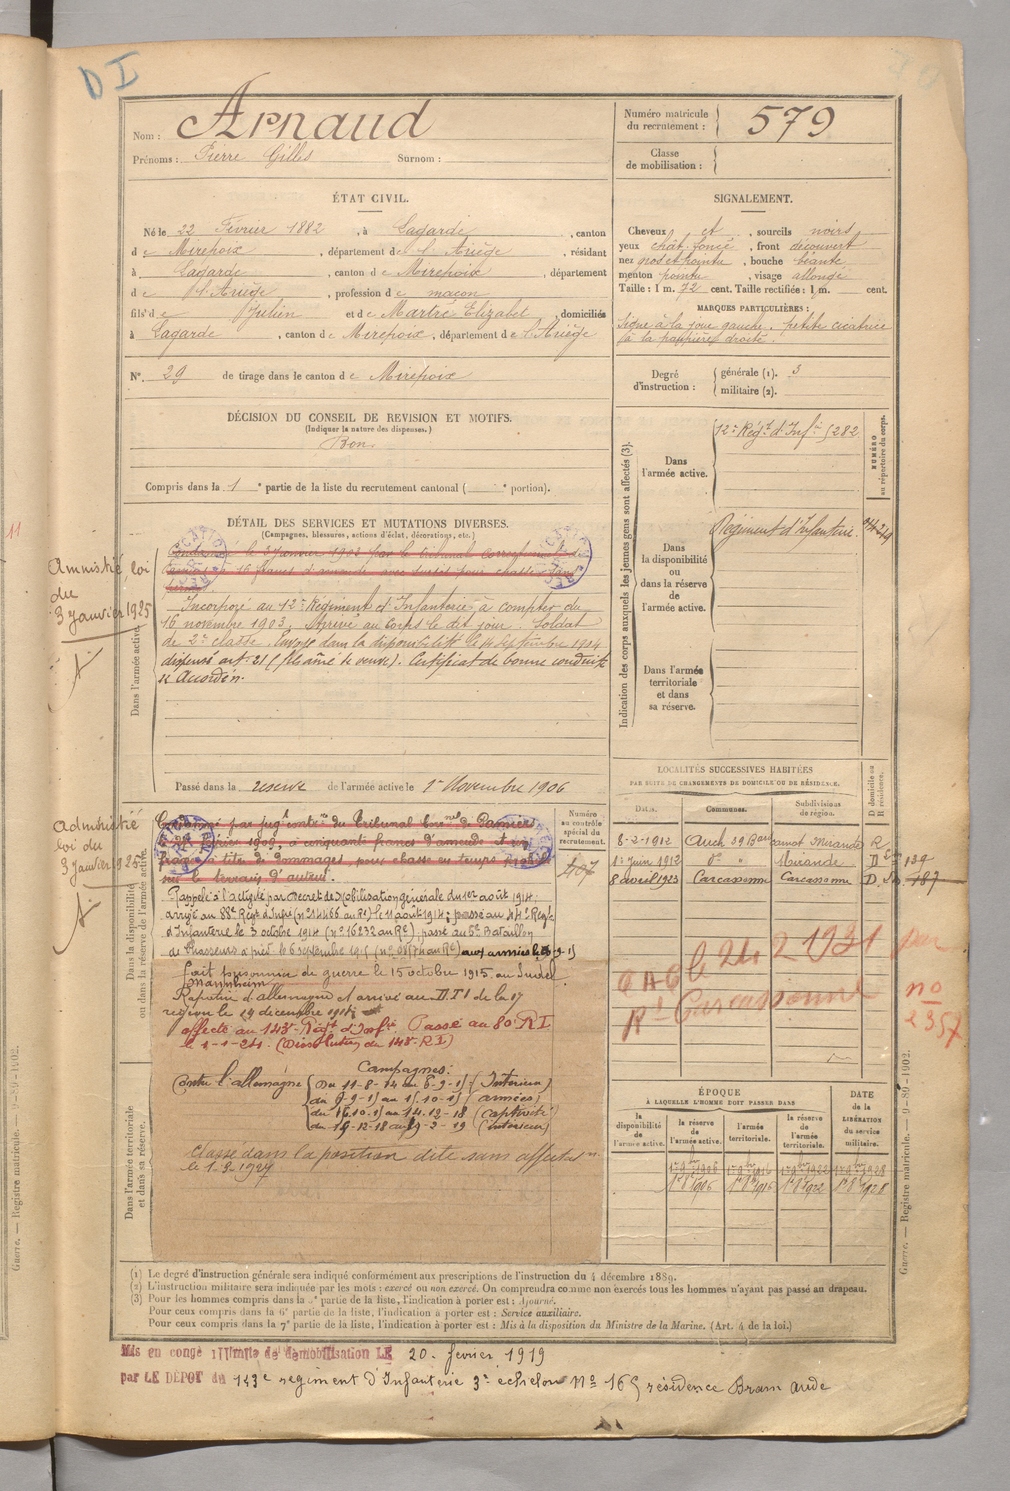 DI
Nom : Arnaud
Prénoms : Pierre Gilles Surnom :
Numéro matricule du recrutement : 579
Classe de mobilisation :
ÉTAT CIVIL.
Né le 22 Février 1882, à Lagarde, canton
de Mirepoix, département de l'Ariège, résidant
à Lagarde, canton de Mirepoix, département
de l'Ariège, profession de maçon
fils de Julien et de Martre Elizabet, domiciliés
à Lagarde, canton de Mirepoix, département de l'Ariège
N°. 29 de tirage dans le canton de Mirepoix
SIGNALEMENT.
Cheveux et, sourcils noirs
yeux chât. foncé, front découvert
nez gros et pointu, bouche béante
menton pointu, visage allongé
Taille : 1 m. 72 cent. Taille rectifiée : 1 m. cent.
MARQUES PARTICULIÈRES :
Signe à la joue gauche. petite cicatrice
à la paupière droite.
Degré d'instruction : générale (1). 3
militaire (2).
DÉCISION DU CONSEIL DE REVISION ET MOTIFS.
(Indiquer la nature des dispenses.)
Bon
Compris dans la 1e partie de la liste du recrutement cantonal ( e portion).
DÉTAIL DES SERVICES ET MUTATIONS DIVERSES.
(Campagnes, blessures, actions d'éclat, décorations, etc.)
Amnistié loi
du
3 Janvier 1925
Dans l'armée active.
le 2 Janvier 1902 par le tribunal correctionnel
à 16 francs d'amende avec sursis pour chasse sans
permis
Incorporé au 12e Régiment d'Infanterie à compter du
16 novembre 1903. Arrivé au corps le dit jour. Soldat
de 2e classe. Envoyé dans la disponibilité le septembre 1904
dispensé art. 21 (fils aîné de veuve). Certificat de bonne conduite
Accordé.
Passé dans la reserve de l'armée active le 1er Novembre 1906
Indication des corps auxquels les jeunes gens sont affectés (3).
Dans l'armée active.
12e Régt d'Infie 5282
NUMÉRO au répertoire du corps.
Dans la disponibilité ou dans la réserve de l'armée active.
Régiment d'Infanterie.
Dans l'armée territoriale et dans sa réserve.
Amnistié
loi du
3 Janvier 1925
Dans la disponibilité ou dans la réserve de l'armée active.
par jugt contre du Tribunal de Pamiers
1909, à cinquante francs d'amende et
francs à titre de dommages, pour chasse en temps
sur le terrain d'autrui.
Numéro au contrôle spécial du recrutement.
407
Rappelé à l'activité par Décret de Mobilisation générale du 1er août 1914
arrivé au 88e Régt d'Infie (n° 14466 au Re) le 11 août 1914; passé au 44e Régt
d'Infanterie le 3 octobre 1914 (n° 16232 au Re) passé au 5e Bataillon
de Chasseurs à pied le 6 septembre 1915
Fait prisonnier de guerre le 15 octobre 1915 au
Mannheim
Rapatrié d'allemagne et arrivé au D.T.I de la 17
région le 14 décembre 1918
affecté au 143e Régt d'Infie. Passé au 80e RI
le 1-1-24. (Dissolution du 143e R I)
Campagnes :
Contre l'allemagne Du 11-8-14 au 6-9-15 (Intérieur)
du 7-9-15 au 15-10-15 (armées)
du 16-10-15 au 14-12-18 (captivité)
du 15-12-18 au 19-3-19 (intérieur)
Classé dans la position dite sans affectation
le 1-3-1927
Dans l'armée territoriale et dans sa réserve.
LOCALITÉS SUCCESSIVES HABITÉES
PAR SUITE DE CHANGEMENTS DE DOMICILE OU DE RÉSIDENCE.
Dates. Communes. Subdivisions de région. D domicile ou R résidence.
8-2-1912 Auch 29 Mirande R
1er juin 1912 do " Mirande D 139
8 avril 1923 Carcassonne Carcassonne D. 187
24 2 1931
Rt Carcassonne
no
2357
ÉPOQUE
À LAQUELLE L'HOMME DOIT PASSER DANS
la disponibilité de l'armée active. la réserve de l'armée active. l'armée territoriale. la réserve de l'armée territoriale.
DATE de la LIBÉRATION du service militaire.
1er 9bre 1906 1er 9bre 1916 1er 9bre 1922 1er 9bre 1928
1er 8bre 1906 1er 8bre 1916 1er 8bre 1922 1er 8bre 1928
(1) Le degré d'instruction générale sera indiqué conformément aux prescriptions de l'instruction du 4 décembre 1889.
(2) L'instruction militaire sera indiquée par les mots : exercé ou non exercé. On comprendra comme non exercés tous les hommes n'ayant pas passé au drapeau.
(3) Pour les hommes compris dans la 5e partie de la liste, l'indication à porter est : Ajourné.
Pour ceux compris dans la 6e partie de la liste, l'indication à porter est : Service auxiliaire.
Pour ceux compris dans la 7e partie de la liste, l'indication à porter est : Mis à la disposition du Ministre de la Marine. (Art. 4 de la loi.)
Mis en congé illimité de démobilisation LE 20 fevrier 1919
par LE DÉPOT du 143e regiment d'Infanterie 3e echelon No 165 résidence Bram aude
Guerre. — Registre matricule. — 9-89-1902.
Guerre. — Registre matricule. — 9-89-1902.
11